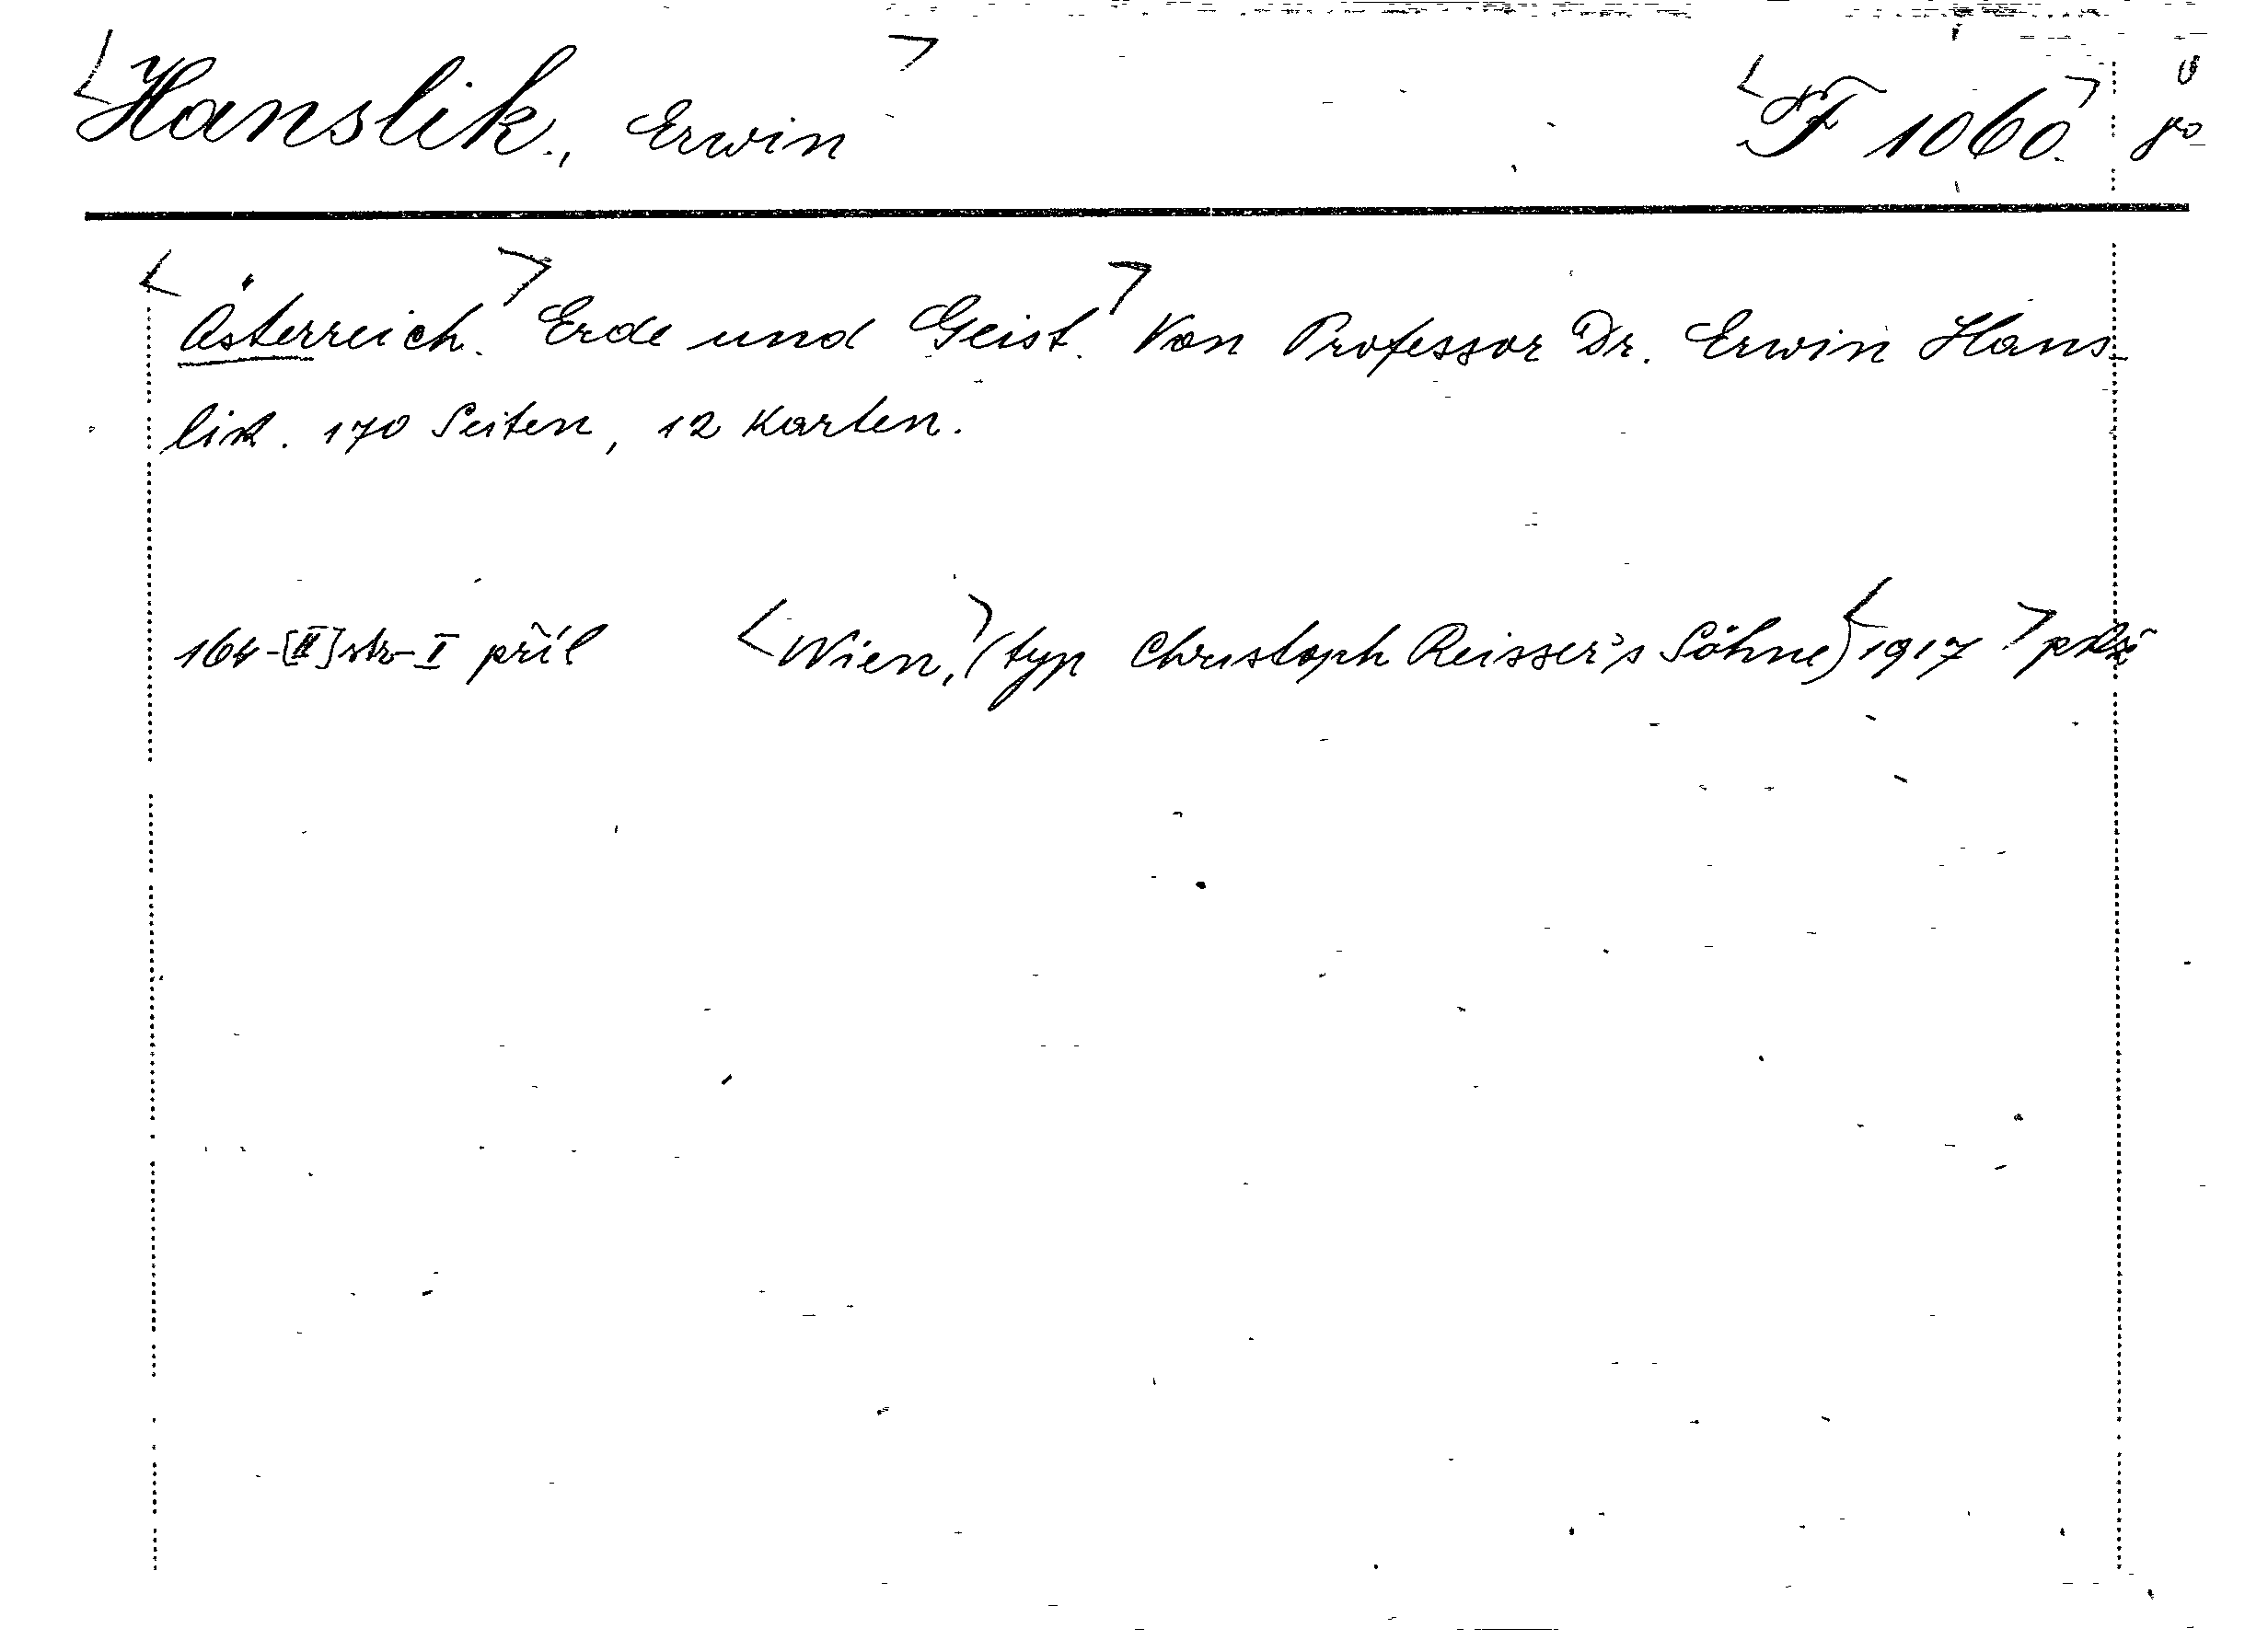 <Hanslik., Erwin> <F 1060.> 8°
<Österreich.> Erde und Geist.> Von Professor Dr. Erwin Hans-
lik. 170 Seiten, 12 Karten.
164-[II] str-I příl <Wien,> (typ Christoph Reisser's Söhne) <1917>